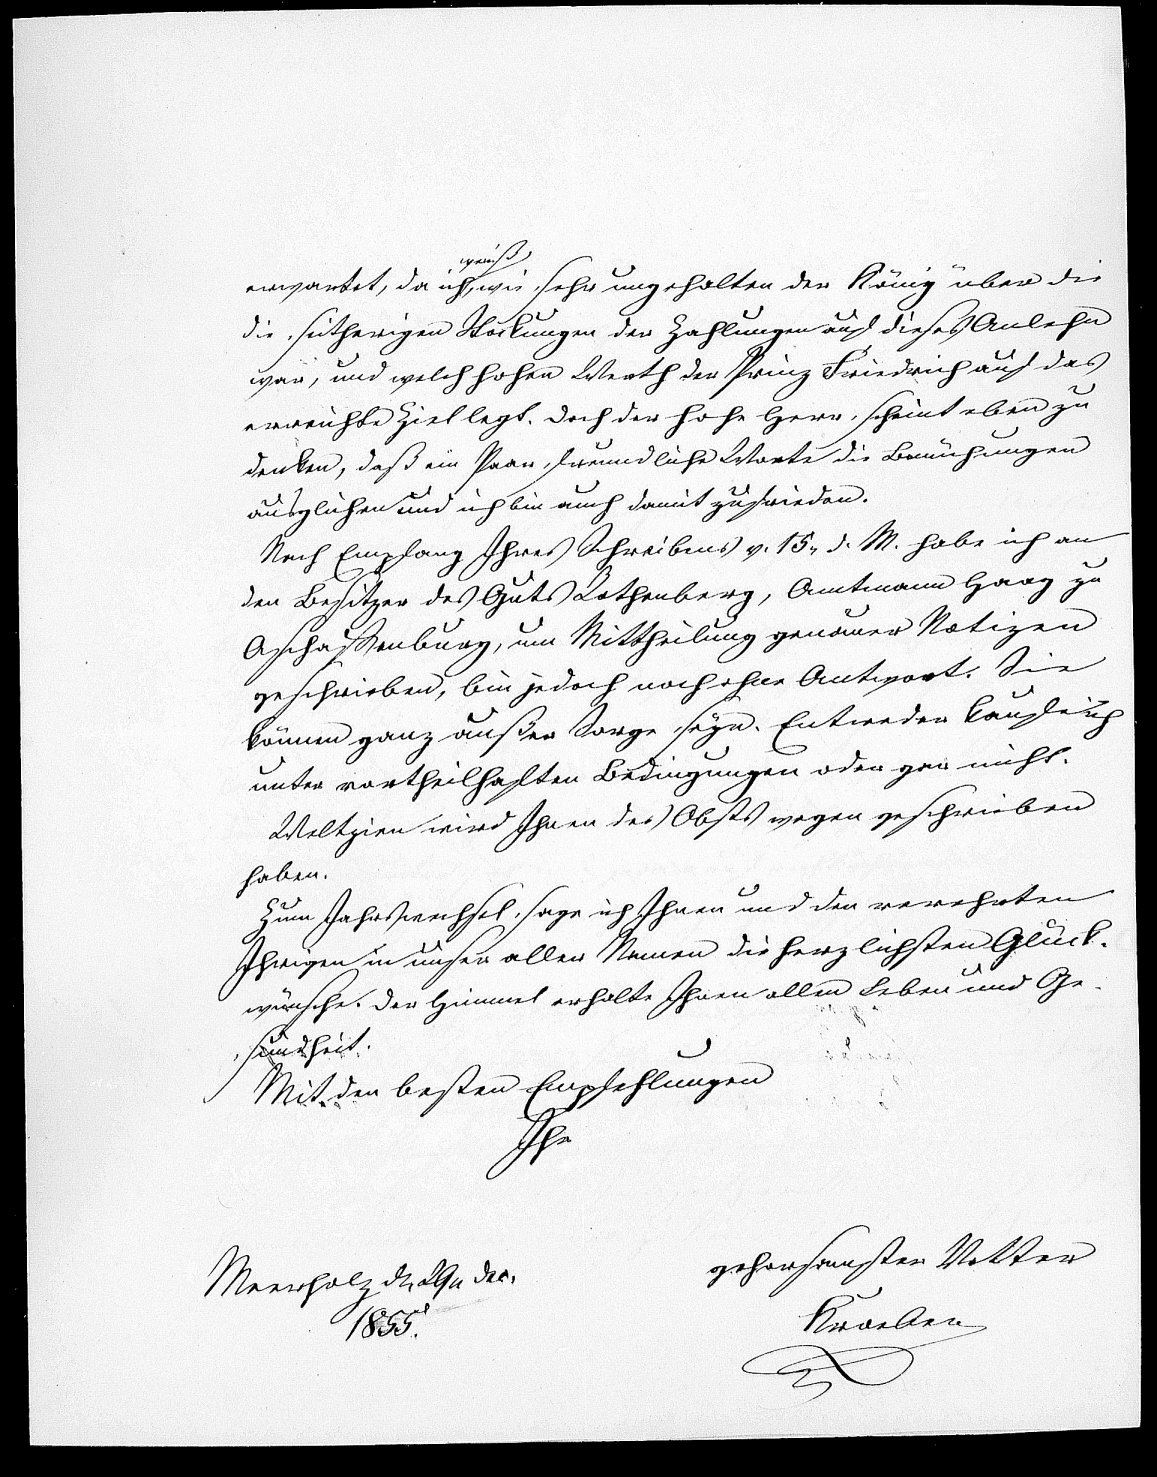 weiß
erwartet, da ich, wie sehr ungehalten der König über die
die seitherigen Stockungen der Zahlungen auf dieses Anlehn
war, und welch hohen Werth der Prinz Friedrich auf das
erreichte Ziel legt. Doch der hohe Herr scheint eben zu
denken, daß ein Paar freundliche Worte die Bemühungen
ausglichen und ich bin auch damit zufrieden.
Nach Empfang Ihres Schreibens v. 15. d. M. habe ich an
den Besitzer des Guts Rothenberg, Amtmann Haag zu
Aschaffenburg, um Mittheilung genauer Notizen
geschrieben, bin jedoch noch ohne Antwort. Sie
können ganz außer Sorge seyn. Entweder kaufe ich
unter vortheilhaften Bedingungen oder gar nicht.
Weltzien wird Ihnen des Obsts wegen geschrieben
haben.
Zum Jahrswechsel sage ich Ihnen und den verehrten
Ihrigen in unser aller Namen die herzlichsten Glück-
wünsche. Der Himmel erhalte Ihnen allen Leben und Ge-
sundheit.
Mit den besten Empfehlungen
Ihr
gehorsamster Vetter
Meerholz d. 29n Dec.
1855.